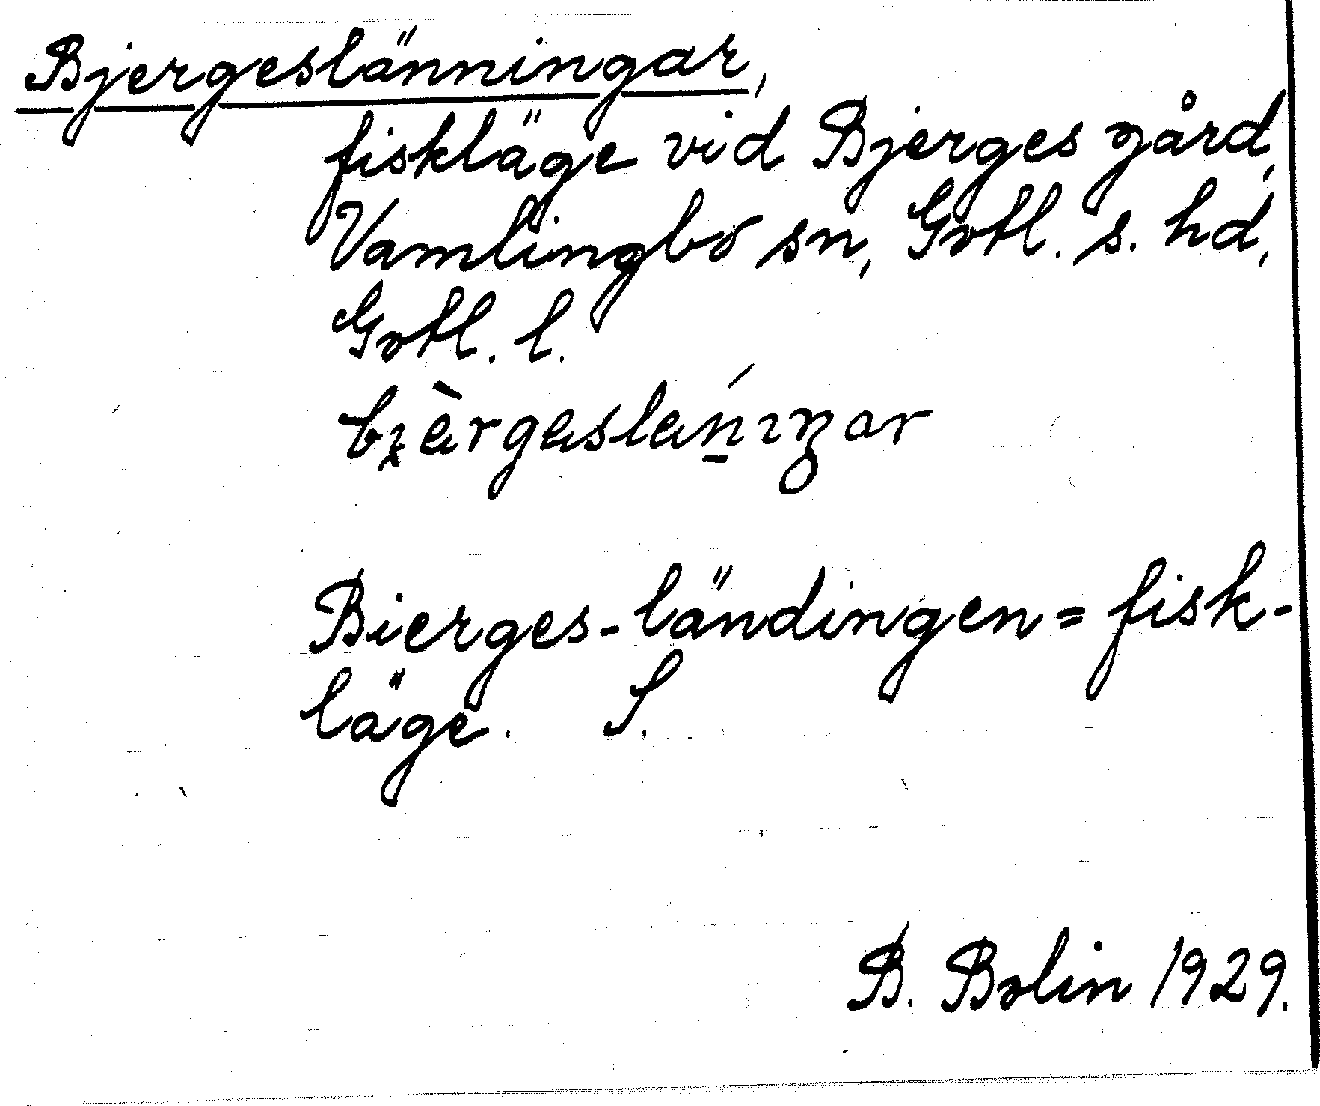 Bjergeslänningar,
fiskläge vid Bjerges gård,
Vamlingbo sn, Gotl. s. hd,
Gotl. l.
Bierges-ländingen = fisk-
läge. S.
B. Bolin 1929.